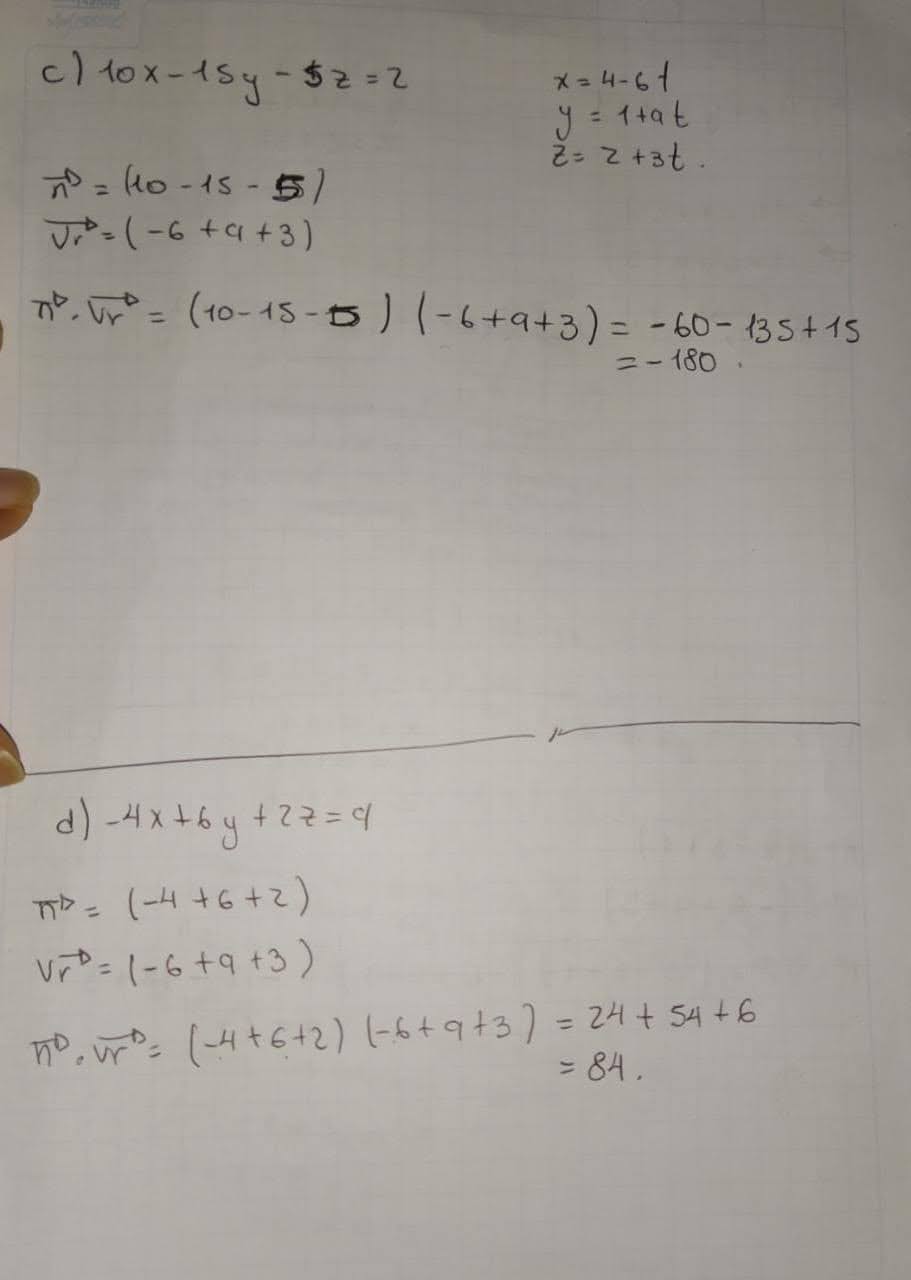 c) 10x-15y-5z=2
x=4-6t
y=1+9t
z=2+3t.
n⃗=(10-15-5)
Vr⃗=(-6+9+3)
n⃗.Vr⃗=(10-15-5)(-6+9+3)=-60-135+15
=-180.
d) -4x+6y+2z=9
n⃗=(-4+6+2)
Vr⃗=(-6+9+3)
n⃗.Vr⃗=(-4+6+2)(-6+9+3)=24+54+6
=84.